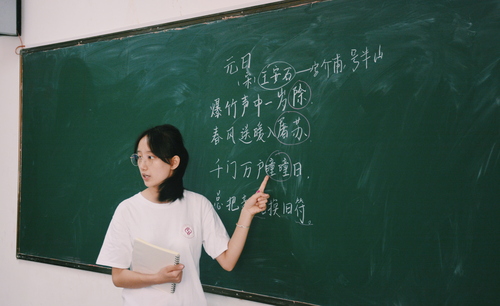 元日
(宋)王安石—字介甫.号半山
爆竹声中一岁除.
春风送暖入屠苏.
千门万户曈曈日.
总把 换旧符.